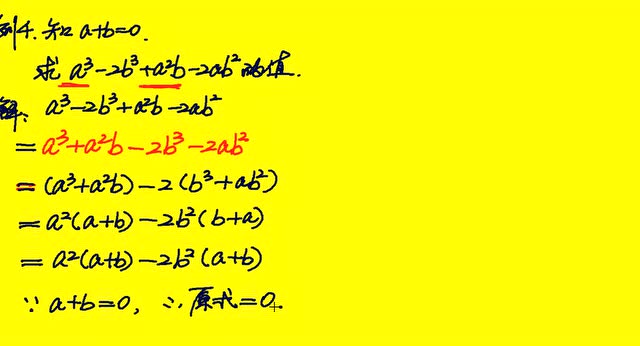 例4.知a+b=0.
求a³-2b³+a²b-2ab²的值.
解:a³-2b³+a²b-2ab²
=a³+a²b-2b³-2ab²
=(a³+a²b)-2(b³+ab²)
=a²(a+b)-2b²(b+a)
=a²(a+b)-2b²(a+b)
∵a+b=0,∴原式=0.